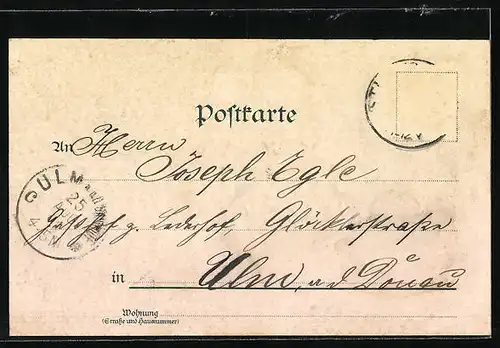 Postkarte
An Herrn
Joseph Egle
ULM
25
4-5N
Gasthof z. Lederhof, Glöcklerstraße
in Ulm, a/d Donau
Wohnung
(Straße und Hausnummer)